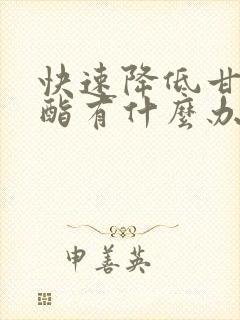 快速降低甘
酯有什麼办
申善英